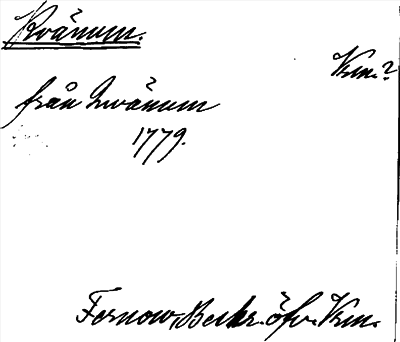 Kvänum.
Vrm.?
från Qwänum
1779.
Fernow, Beskr. öfv. Vrm.